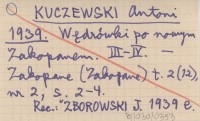 KUCZEWSKI Antoni
1939. Wędrówki po nowym
Zakopanem. III-IV. —
Zakopane (Zakopane) t. 2 (12),
nr 2, s. 2-4.
Rec.: ZBOROWSKI J. 1939 e.